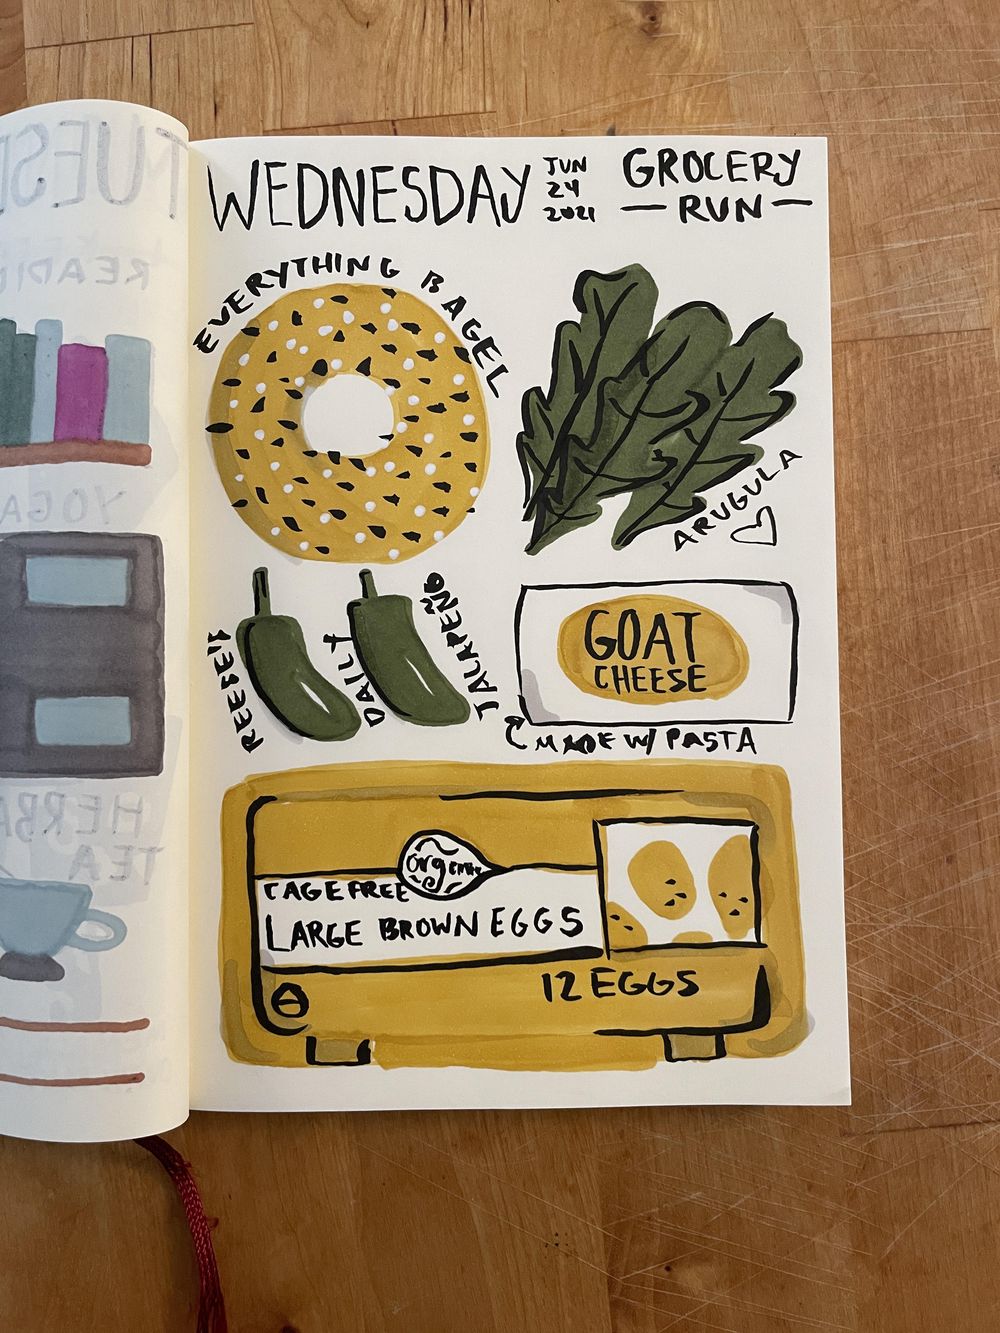 WEDNESDAY
JUN
24
2021
GROCERY
— RUN —
EVERYTHING BAGEL
ARUGULA
REESE'S
DAILY
JALAPEÑO
GOAT
CHEESE
MADE W/ PASTA
organic
CAGE FREE
LARGE BROWN EGGS
12 EGGS
TUESD
READI
YOGA
HERBA
TEA